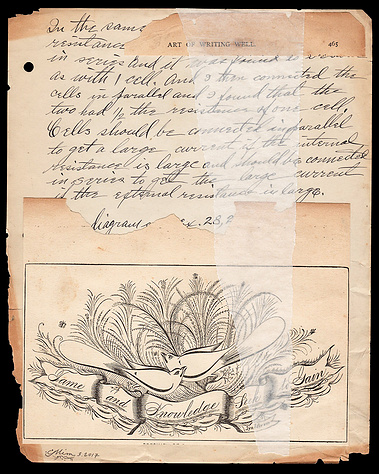 In the same
ART OF WRITING WELL. 465
resistance
in series and it was found to
as with 1 cell. And I then connected the
cells in parallel and I found that the
two had 1/2 the resistance of one cell.
Cells should be connected in parallel
to get a large current if the internal
resistance is large and should be connected
in series to get the large current
if the external resistance is large.
Diagram 28, 2
Fame and Knowledge Gain